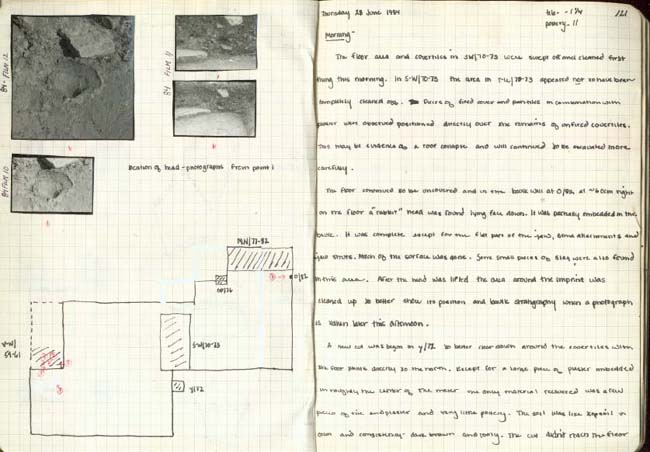 84 - FILM 12
84 FILM 11
84 FILM 10
location of head - photographs from point 1
M,N/77-82
0/82
Y/72
Thursday 28 June 1984
tile - 174
pottery - 11
121
Morning
The floor area and covertiles in S-W/70-73 were swept off and cleaned first
thing this morning. In S-W/70-73 the area in T-U/70-73 appeared not to have been
completely cleaned off. Pieces of fired cover and pantiles in combination with
plaster were observed positioned directly over the remains of unfired covertiles.
This may be evidence of a roof collapse and will continued to be evaluated more
carefully.
The floor continued to be uncovered and in the baulk wall at 0/82 at ~60cm right
on the floor a "rabbit" head was found lying face down. It was partially embedded in the
baulk. It was complete except for the flat part of the jaw, some attachments and
jaw struts. Much of the surface was gone. Some small pieces of slag were also found
in this area. After the head was lifted the area around the imprint was
cleaned up to better show its position and baulk stratigraphy when a photograph
is taken later this afternoon.
A new cut was begun in Y/72 to better clear down around the covertiles with
the floor plaster directly to the north. Except for a large piece of plaster embedded
in roughly the center of the meter the only material recovered was a few
pieces of tile and plaster and very little pottery. The soil was like topsoil in
color and consistency - dark brown and loamy. The cut didn't reach the floor